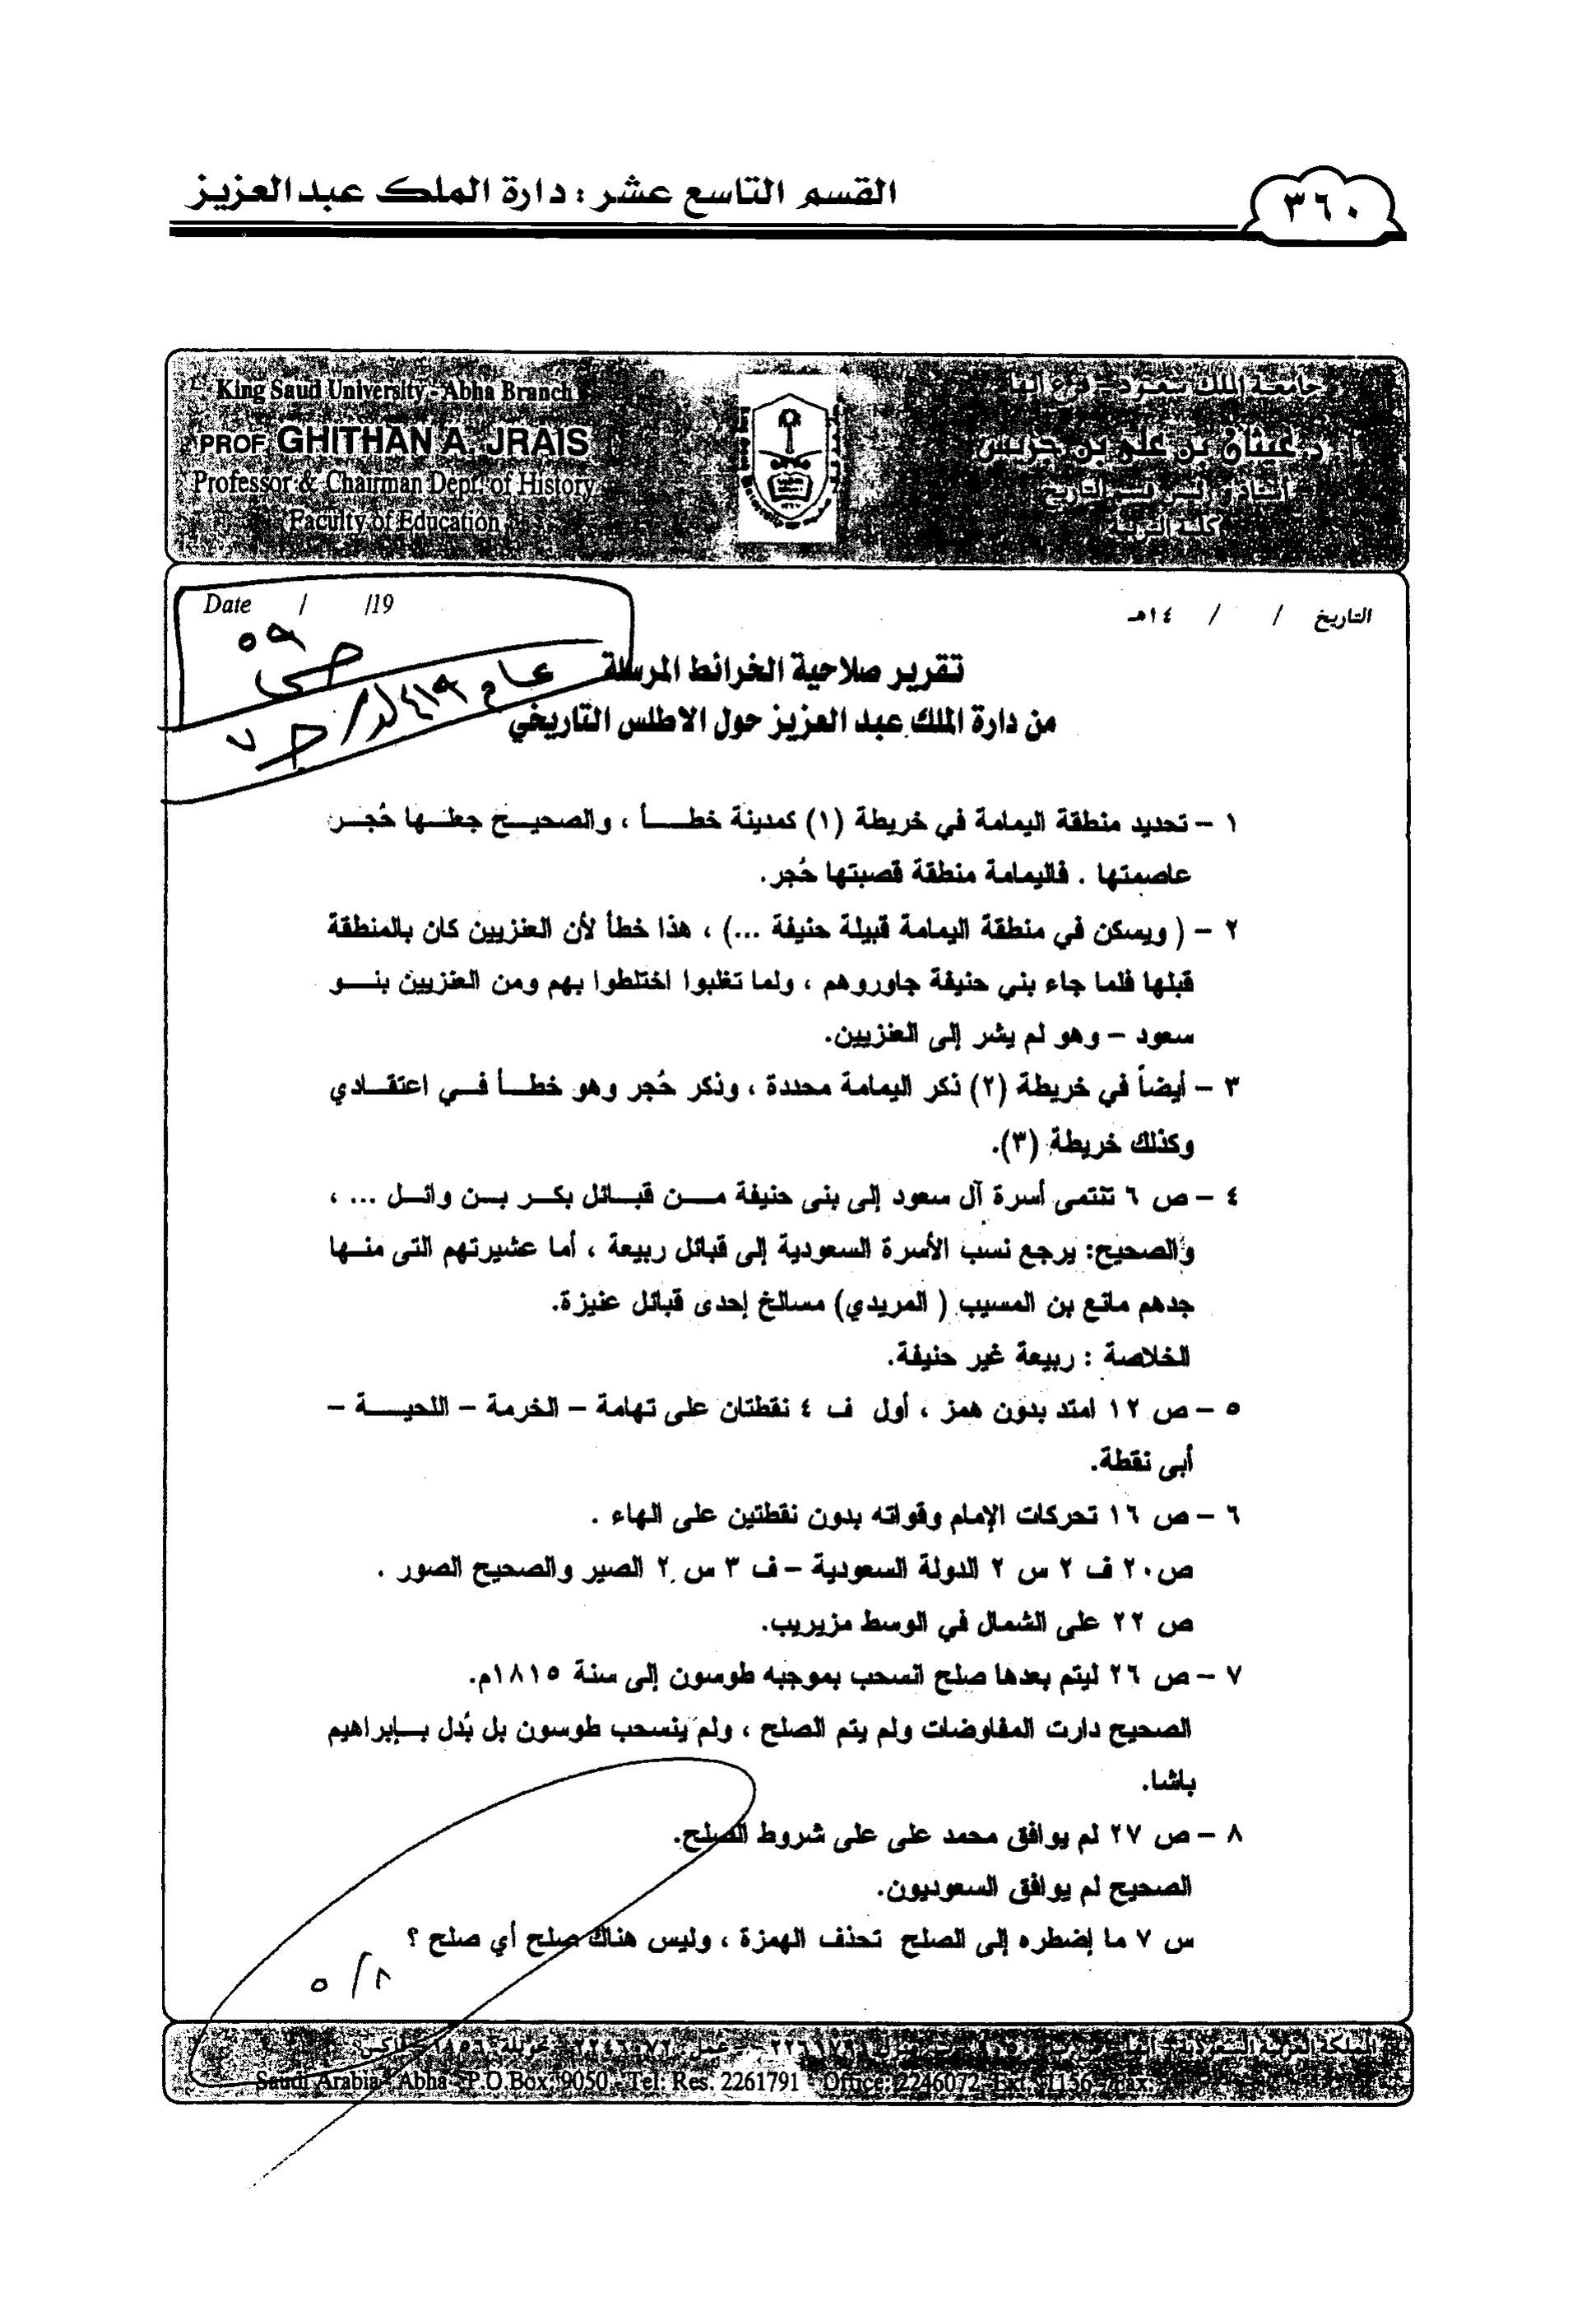 القسم التاسع عشر : دارة الملك عبدالعزيز
٣٦٠
King Saud University - Abha Branch
PROF. GHITHAN A. JRAIS
Professor & Chairman Dept. of History
Faculty of Education
جامعة الملك سعود - فرع أبها
د. غيثان بن علي بن جريس
أستاذ ورئيس قسم التاريخ
كلية التربية
Date / /19
التاريخ / / ١٤هـ
ص ٥٩
عام ١٤١٩هـ / ج ٧
تقرير صلاحية الخرائط المرسلة
من دارة الملك عبد العزيز حول الاطلس التاريخي
١ – تحديد منطقة اليمامة في خريطة (١) كمدينة خطـــأ ، والصحيـــح جعلـــها حُجـــر
عاصمتها . فاليمامة منطقة قصبتها حُجر.
٢ – ( ويسكن في منطقة اليمامة قبيلة حنيفة ...) ، هذا خطأ لأن العنزيين كان بالمنطقة
قبلها فلما جاء بني حنيفة جاوروهم ، ولما تغلبوا اختلطوا بهم ومن العنزيين بنـــو
سعود – وهو لم يشر إلى العنزيين.
٣ – أيضاً في خريطة (٢) ذكر اليمامة محددة ، وذكر حُجر وهو خطـــأ فـــي اعتقـــادي
وكذلك خريطة (٣).
٤ – ص ٦ تنتمى أسرة آل سعود إلى بنى حنيفة مـــن قبـــائل بكـــر بـــن وائـــل ... ،
والصحيح: يرجع نسب الأسرة السعودية إلى قبائل ربيعة ، أما عشيرتهم التى منـــها
جدهم مانع بن المسيب ( المريدي) مسالخ إحدى قبائل عنيزة.
الخلاصة : ربيعة غير حنيفة.
٥ – ص ١٢ امتد بدون همز ، أول ف ٤ نقطتان على تهامة – الخرمة – اللحيـــة –
أبى نقطة.
٦ – ص ١٦ تحركات الإمام وقواته بدون نقطتين على الهاء .
ص٢٠ ف ٢ س ٢ الدولة السعودية – ف ٣ س ٢ الصير والصحيح الصور .
ص ٢٢ على الشمال في الوسط مزيريب.
٧ – ص ٢٦ ليتم بعدها صلح انسحب بموجبه طوسون إلى سنة ١٨١٥م.
الصحيح دارت المفاوضات ولم يتم الصلح ، ولم ينسحب طوسون بل بُدل بـــإبراهيم
باشا.
٨ – ص ٢٧ لم يوافق محمد على على شروط الصلح.
الصحيح لم يوافق السعوديون.
س ٧ ما إضطره إلى الصلح تحذف الهمزة ، وليس هناك صلح أي صلح ؟
٥/١
Saudi Arabia - Abha - P.O.Box. 9050 - Tel: Res. 2261791 Office: 2246072 - Ext. 1156 - Fax: